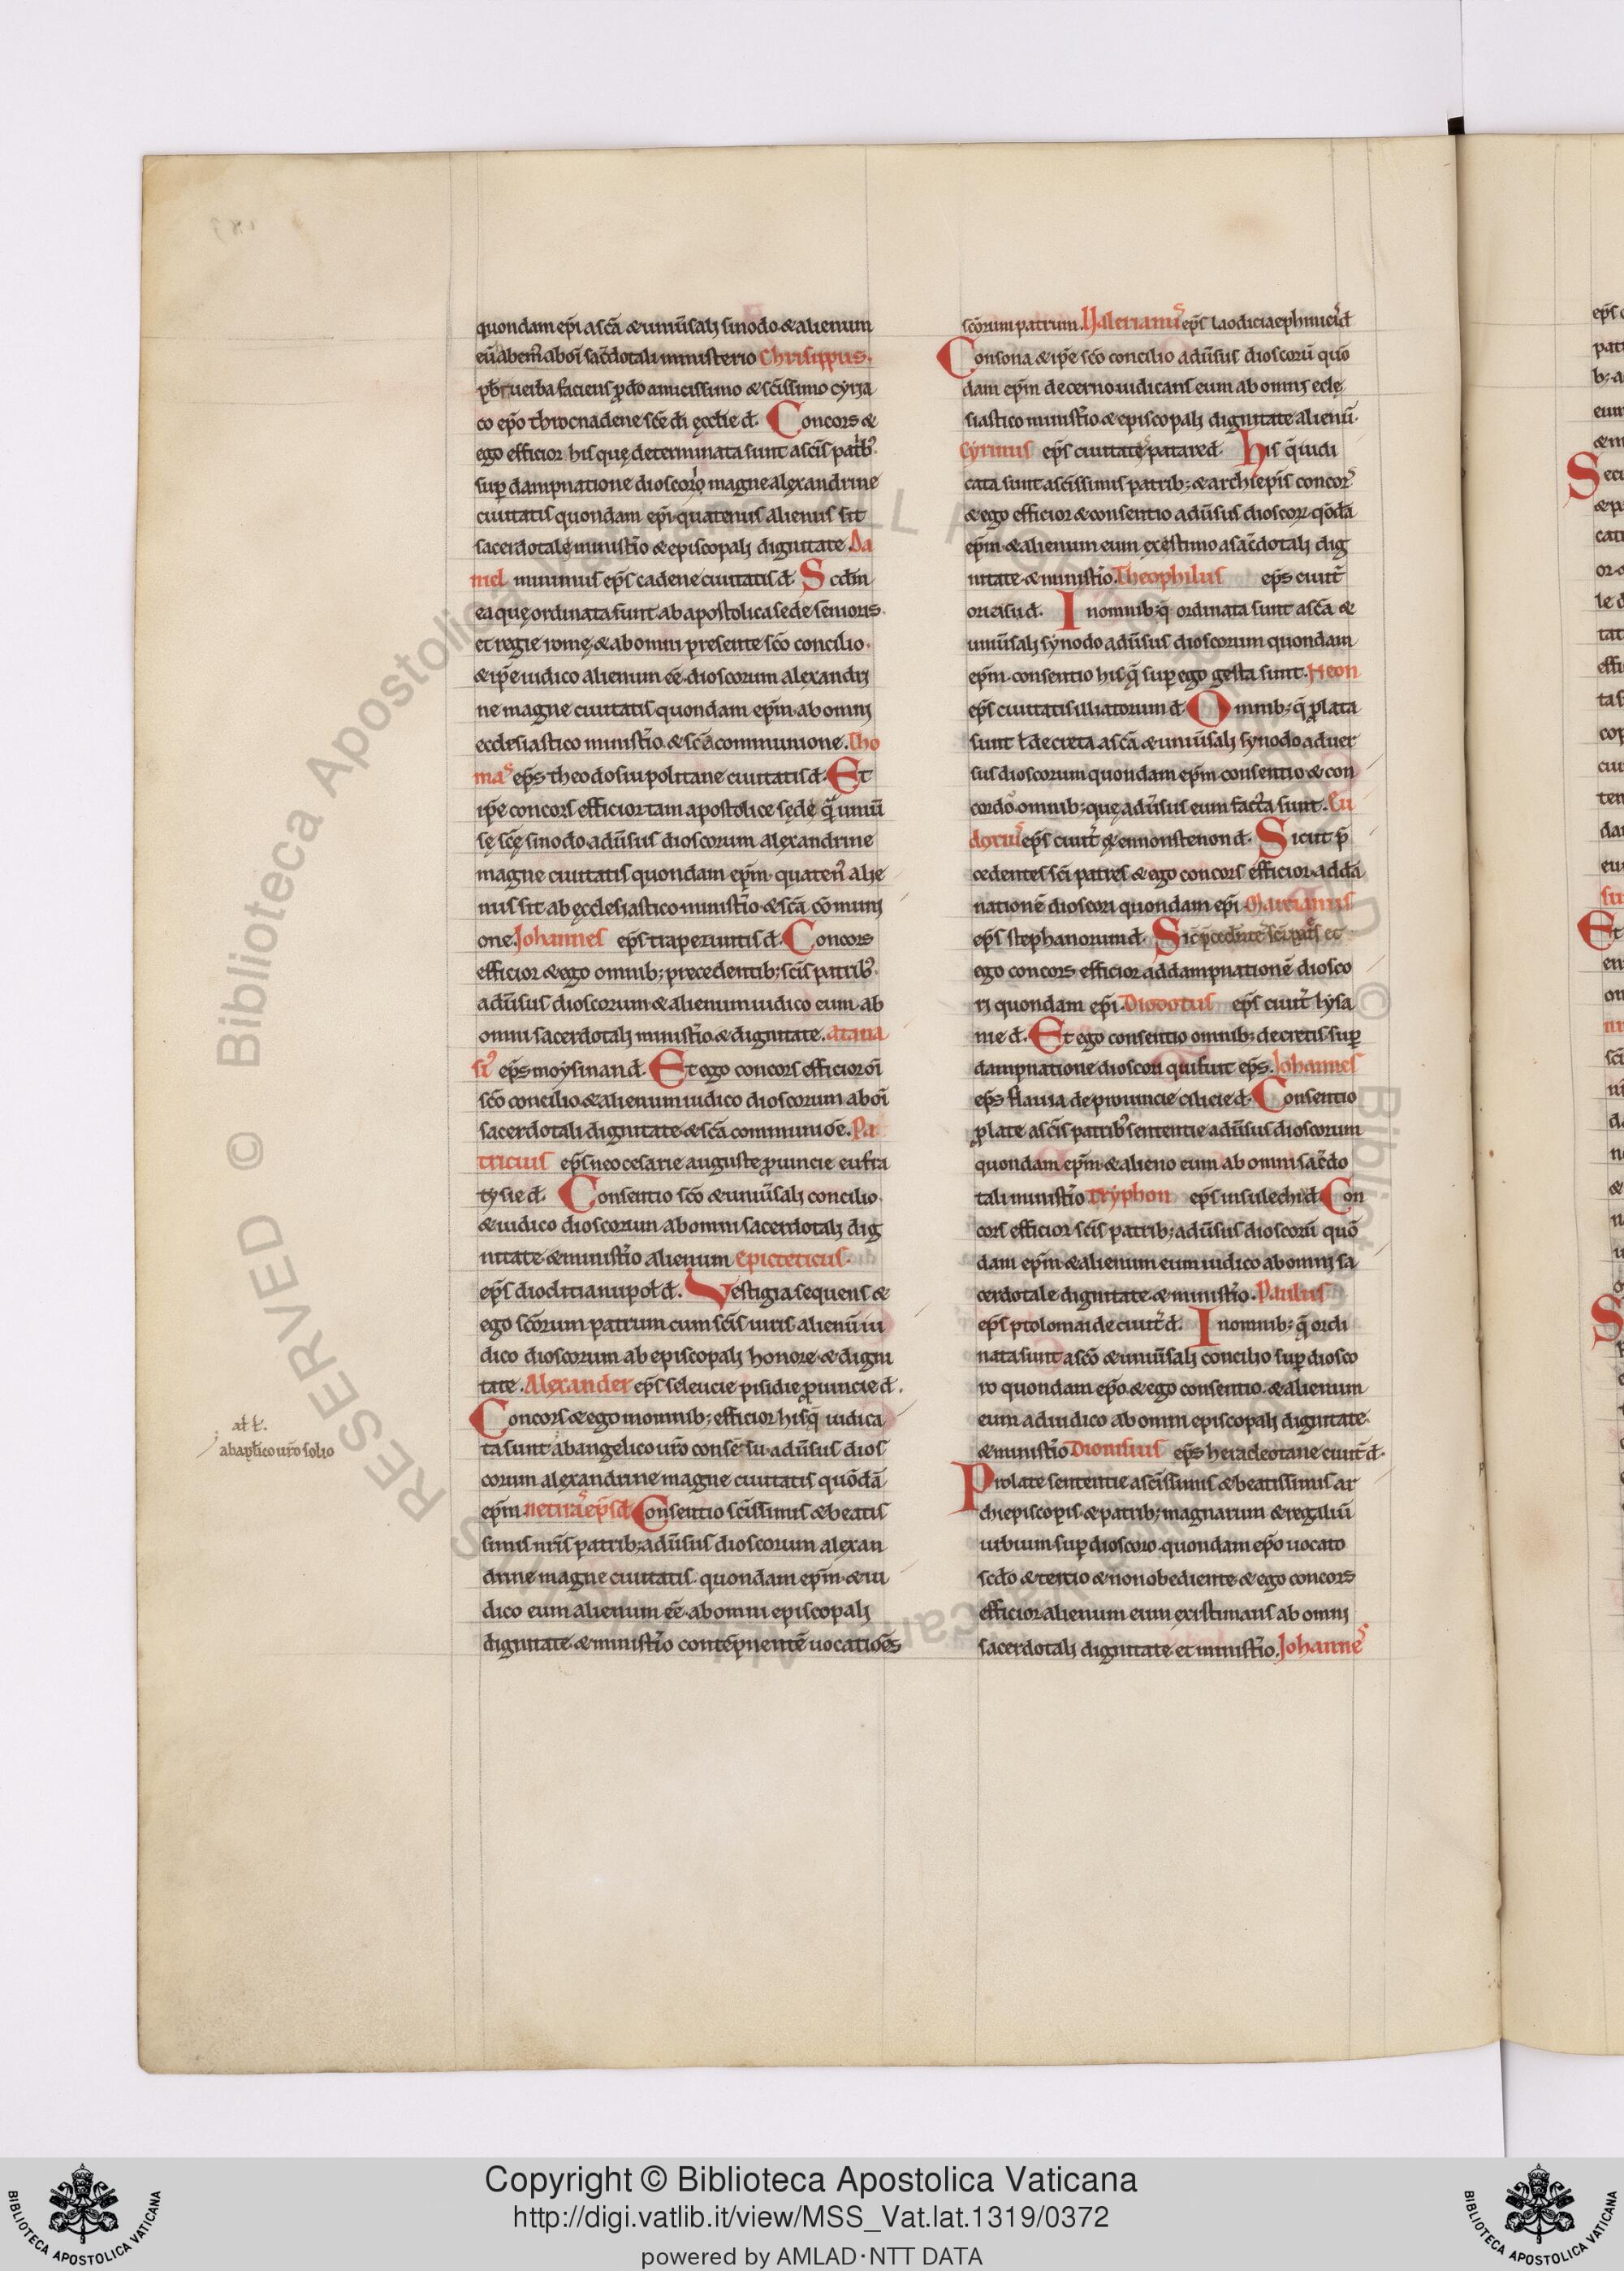 quondam ep̄i a scā & uniū̄sali sinodo & alienum
eū abem̄ aboı̄ sac̄dotali ministerio Chrisippus.
pb̄r uerba faciens p̱do amicissimo & sc̄issimo cyria
co ep̄o throcnadene sc̄e dı̄ ęcclie d̄. Concors &
ego efficior his quę determinata sunt a sc̄is patrib᾽
sup̱ dampnatione dioscori magne alexandrine
ciuitatis quondam ep̄i quatenus alienus sit
sacerdotale minist̄io & episcopali dignitate. Da
niel minimus ep̄s cadene ciuitatis d̄. Scdm̄
ea quę ordinata sunt ab apostolica sede senioris
et regie romę & ab omni presente sc̄o concilio.
& ip̄e iudico alienum ēē dioscorum alexandri
ne magne ciuitatis quondam ep̄m ab omni
ecclesiastico minist̄io & sc̄a communione. Tho
mas ep̄s theodosiupolitane ciuitatis d̄. Et
ip̄e concors efficior tam apostolice sędę q̄ uniū
sę sc̄ę sinodo adūsus dioscorum alexandrine
magne ciuitatis quondam ep̄m quaten᾽ alie
nus sit ab ęcclesiastico minist̄io & sc̄a cōmuni
one. Johannes ep̄s traperuntis d̄. Concors
efficior & ego omnib; precedentib; sc̄is patrib᾽
adūsus dioscorum & alienum iudico eum ab
omni sacerdotali minist̄io & dignitate. atana
si᾽ ep̄s moysinan d̄. Et ego concors efficior oı̄
sc̄o concilio & alienum iudico dioscorum ab oı̄
sacerdotali dignitate & sc̄a communiōe. Pa
tricius ep̄s neocesarie auguste ꝓuincie eufra
tysie d̄. Consentio sc̄o & uniūsali concilio.
& iudico dioscorum ab omni sacerdotali dig
nitate & minist̄io alienum epicteticus.
ep̄s dioclitianupoł d̄. Vestigia sequens &
ego sc̄orum patrum cum sc̄is uiris alienū iu
dico dioscorum ab episcopali honore & digni
tate. Alexander ep̄s seleucie pisidie ꝓuincie d̄.
Concors & ego in omnib; efficior his q̄ iudica
ta sunt ab angelico ur̄o consēsu adūsus dios
corum alexandrine magne ciuitatis quōdā
ep̄m. netiras ep̄s d̄ Consentio sc̄issimis & beatis
simis nr̄is patrib; adūsus dioscorum alexan
drine magne ciuitatis quondam ep̄m & iu
dico eum alienum ēē ab omni episcopali
dignitate & minist̄io contēpnentē uocatiōes
ał ł.
ab apłico ur̄o solio
sc̄orum patrum. Ualerianus ep̄s laodicia ephinicı̄ d̄
Consona & ip̄e sc̄o concilio adūsus dioscorū quō
dam ep̄m decerno iudicans eum ab omni eclę
siastico minist̄io & episcopali dignitate alienū.
Cyrinus ep̄s ciuitatęs patare d̄. His q̄ iudi
cata sunt a sc̄issimis patrib; & archiepı̄s concors
& ego efficior & consentio adūsus dioscorū qōdā
ep̄m & alienum eum exęstimo a sac̄dotali dig
nitate & minist̄io. Theophilus ep̄s ciuit̄
oricisu d̄. In omnib; q̄ ordinata sunt a sc̄a &
uniūsali synodo adūsus dioscorum quondam
ep̄m consentio his q̄ sup̱ ego gesta sunt. Neon
ep̄s ciuitatis illiatorum d̄. Omnib; q̄ ꝓlata
sunt ł decreta a sc̄a & uniūsali synodo aduer
sus dioscorum quondam ep̄m consentio & con
cordo omnib; quę adūsus eum facta sunt. Eu
dorius ep̄s ciuit̄ &ennonstenon d̄. Sicut p̄
cedentes sc̄i patres & ego concors efficior ad dā
nationē dioscori quondam ep̄i. Marcianus
ep̄s stephanorum d̄. Sic p̄cedente sc̄i pat̄s et
ego concors efficior ad dampnationē diosco
ri quondam ep̄i. Diodotus ep̄s ciuit̄ lysa
nie d̄. Et ego consentio omnib; decretis sup̱
dampnatione dioscori qui fuit ep̄s. Johannes
ep̄s flauiade prouincie cilicie d̄. Consentio
ꝓlate a sc̄is patrib᾽ sententie adūsus dioscorum
quondam ep̄m & alieno eum ab omni sac̄do
tali minist̄io. Tryphon ep̄s insule chi d̄. Con
cors efficior sc̄is patrib; adūsus dioscorū quō
dam ep̄m & alienum eum iudico ab omni sa
cerdotale dignitate & minist̄io. Paulus
ep̄s ptolomaide ciuit̄ d̄. In omnib; q̄ ordi
nata sunt a sc̄o & uniūsali concilio sup̱ diosco
ro quondam ep̄o & ego consentio & alienum
eum adiudico ab omni episcopali dignitate
& minist̄io Dionisius ep̄s heracleotane ciuit̄ d̄.
Prolate sententie a sc̄issimis & beatissimis ar
chiepiscopis & patrib; magnarum & regaliū
urbium sup̱ dioscoro quondam ep̄o uocato
sc̄do & tertio & non obediente & ego concors
efficior alienum eum existimans ab omni
sacerdotali dignitate et minist̄io. Johannes
RESERVED © Biblioteca Apostolica Vaticana ALL RIGHTS RESERVED © Biblioteca Apostolica Vaticana ALL RIGHTS
Copyright © Biblioteca Apostolica Vaticana
http://digi.vatlib.it/view/MSS_Vat.lat.1319/0372
powered by AMLAD·NTT DATA
BIBLIOTECA APOSTOLICA VATICANA
BIBLIOTECA APOSTOLICA VATICANA